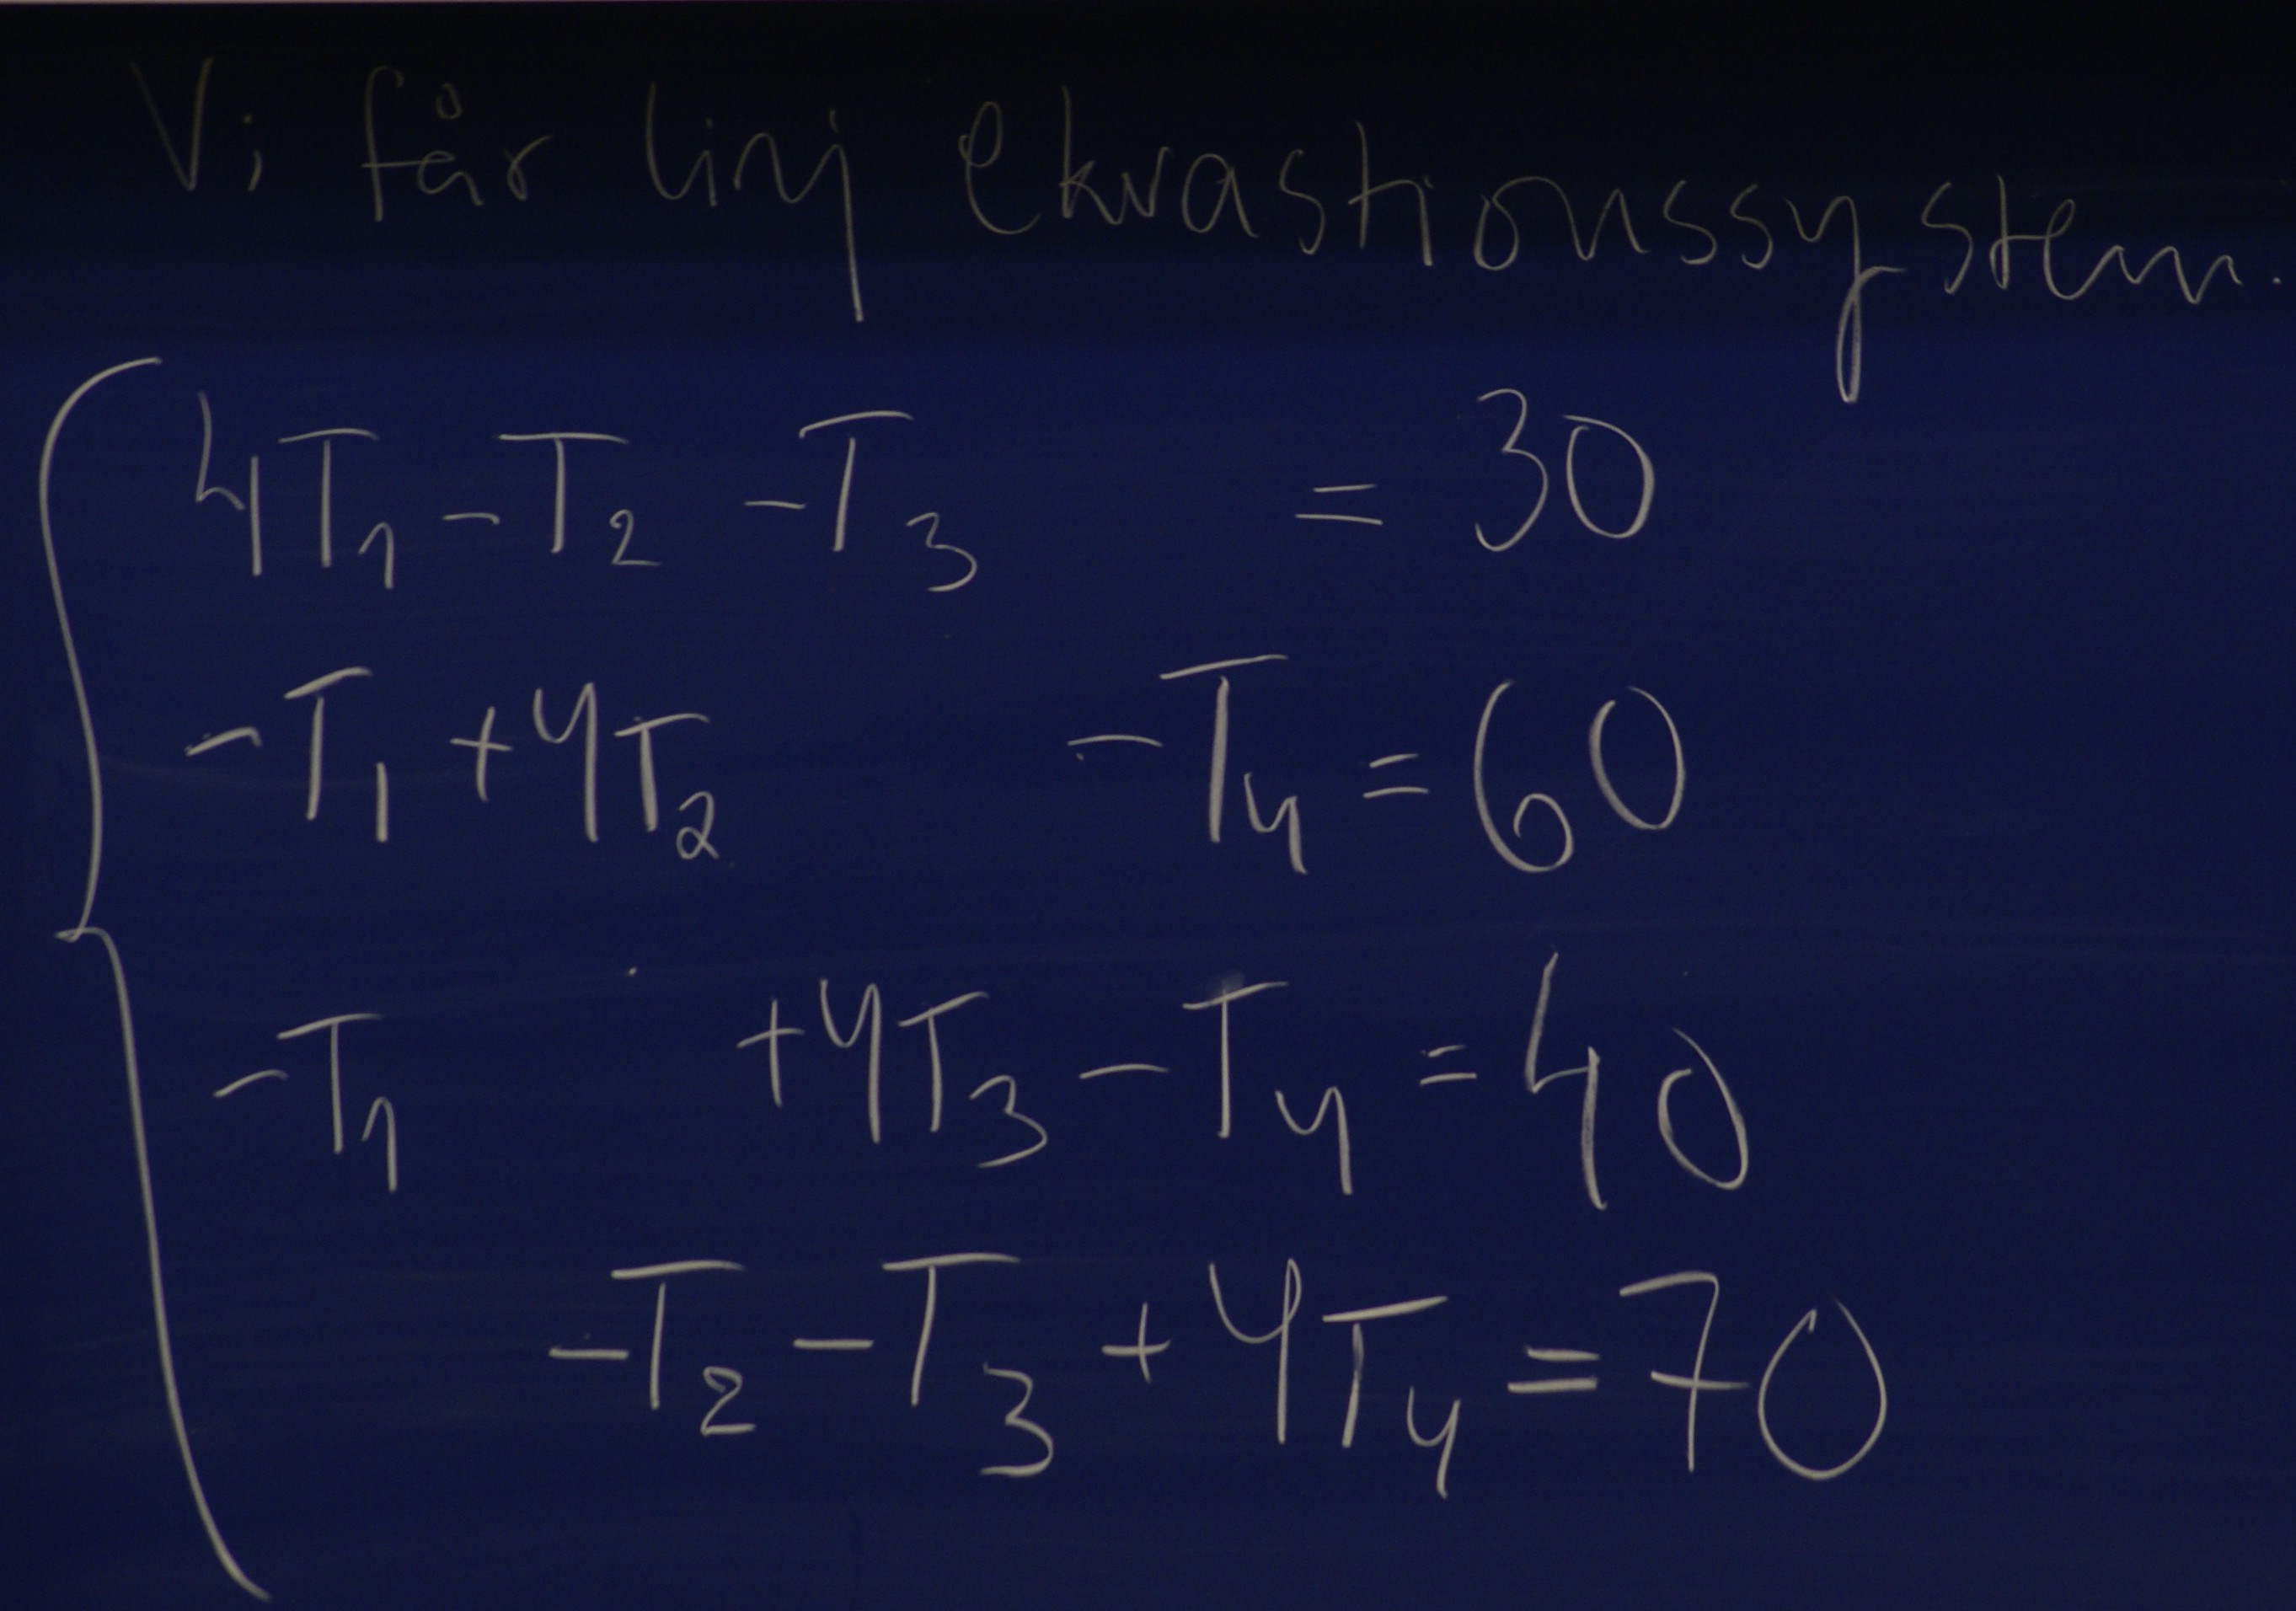 Vi får linj ekvastionssystem.
4T₁ - T₂ - T₃ = 30
-T₁ + 4T₂ - T₄ = 60
-T₁ + 4T₃ - T₄ = 40
-T₂ - T₃ + 4T₄ = 70